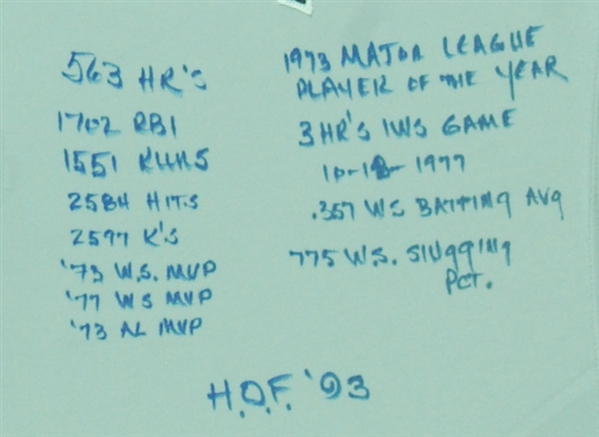 563 HR'S
1702 RBI
1551 RUNS
2584 HITS
2597 K'S
'73 W.S. MVP
'77 WS MVP
'73 AL MVP
1973 MAJOR LEAGUE
PLAYER OF THE YEAR
3 HR'S IWS GAME
10-18-1977
.357 WS BATTING AVG
775 W.S. SLUGGING
PCT.
H.O.F. '93